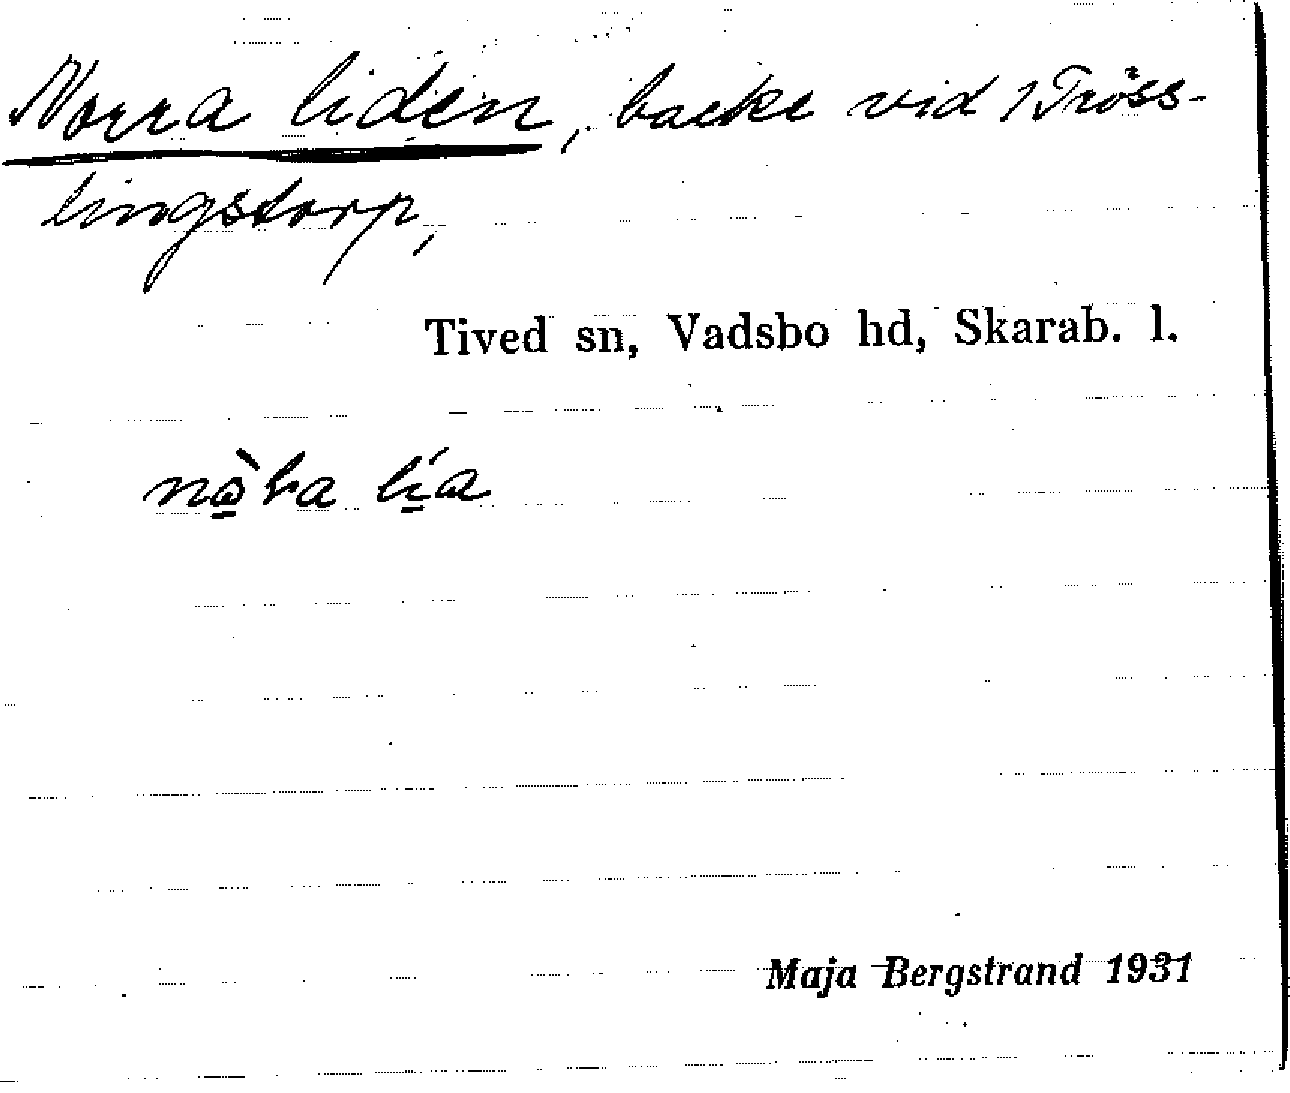 Norra liden, backe vid 1 Tröss-
lingstorp,
Tived sn, Vadsbo hd, Skarab. l.
lia
Maja Bergstrand 1931